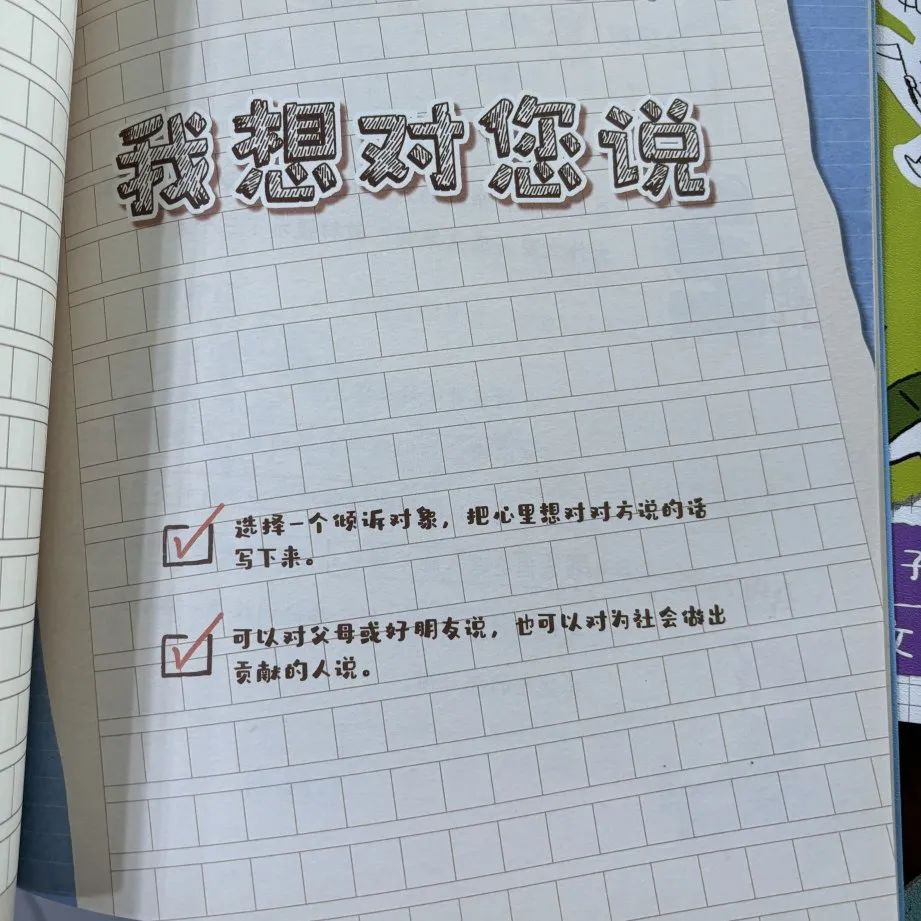 我想对您说
选择一个倾诉对象，把心里想对对方说的话
写下来。
可以对父母或好朋友说，也可以对为社会做出
贡献的人说。
子
文